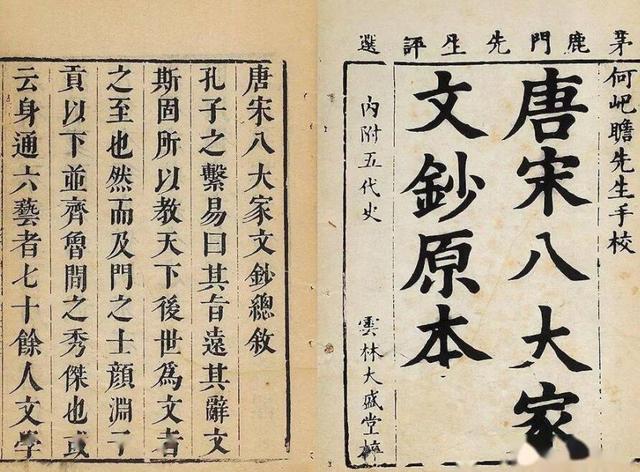 茅鹿門先生評選
何屺瞻先生手校
唐宋八大家
文鈔原本
內附五代史 雲林大盛堂梓
唐宋八大家文鈔總敘
孔子之繫易曰其旨遠其辭文
斯固所以教天下後世爲文者
之至也然而及門之士顏淵子
貢以下並齊魯間之秀傑也或
云身通六藝者七十餘人文學